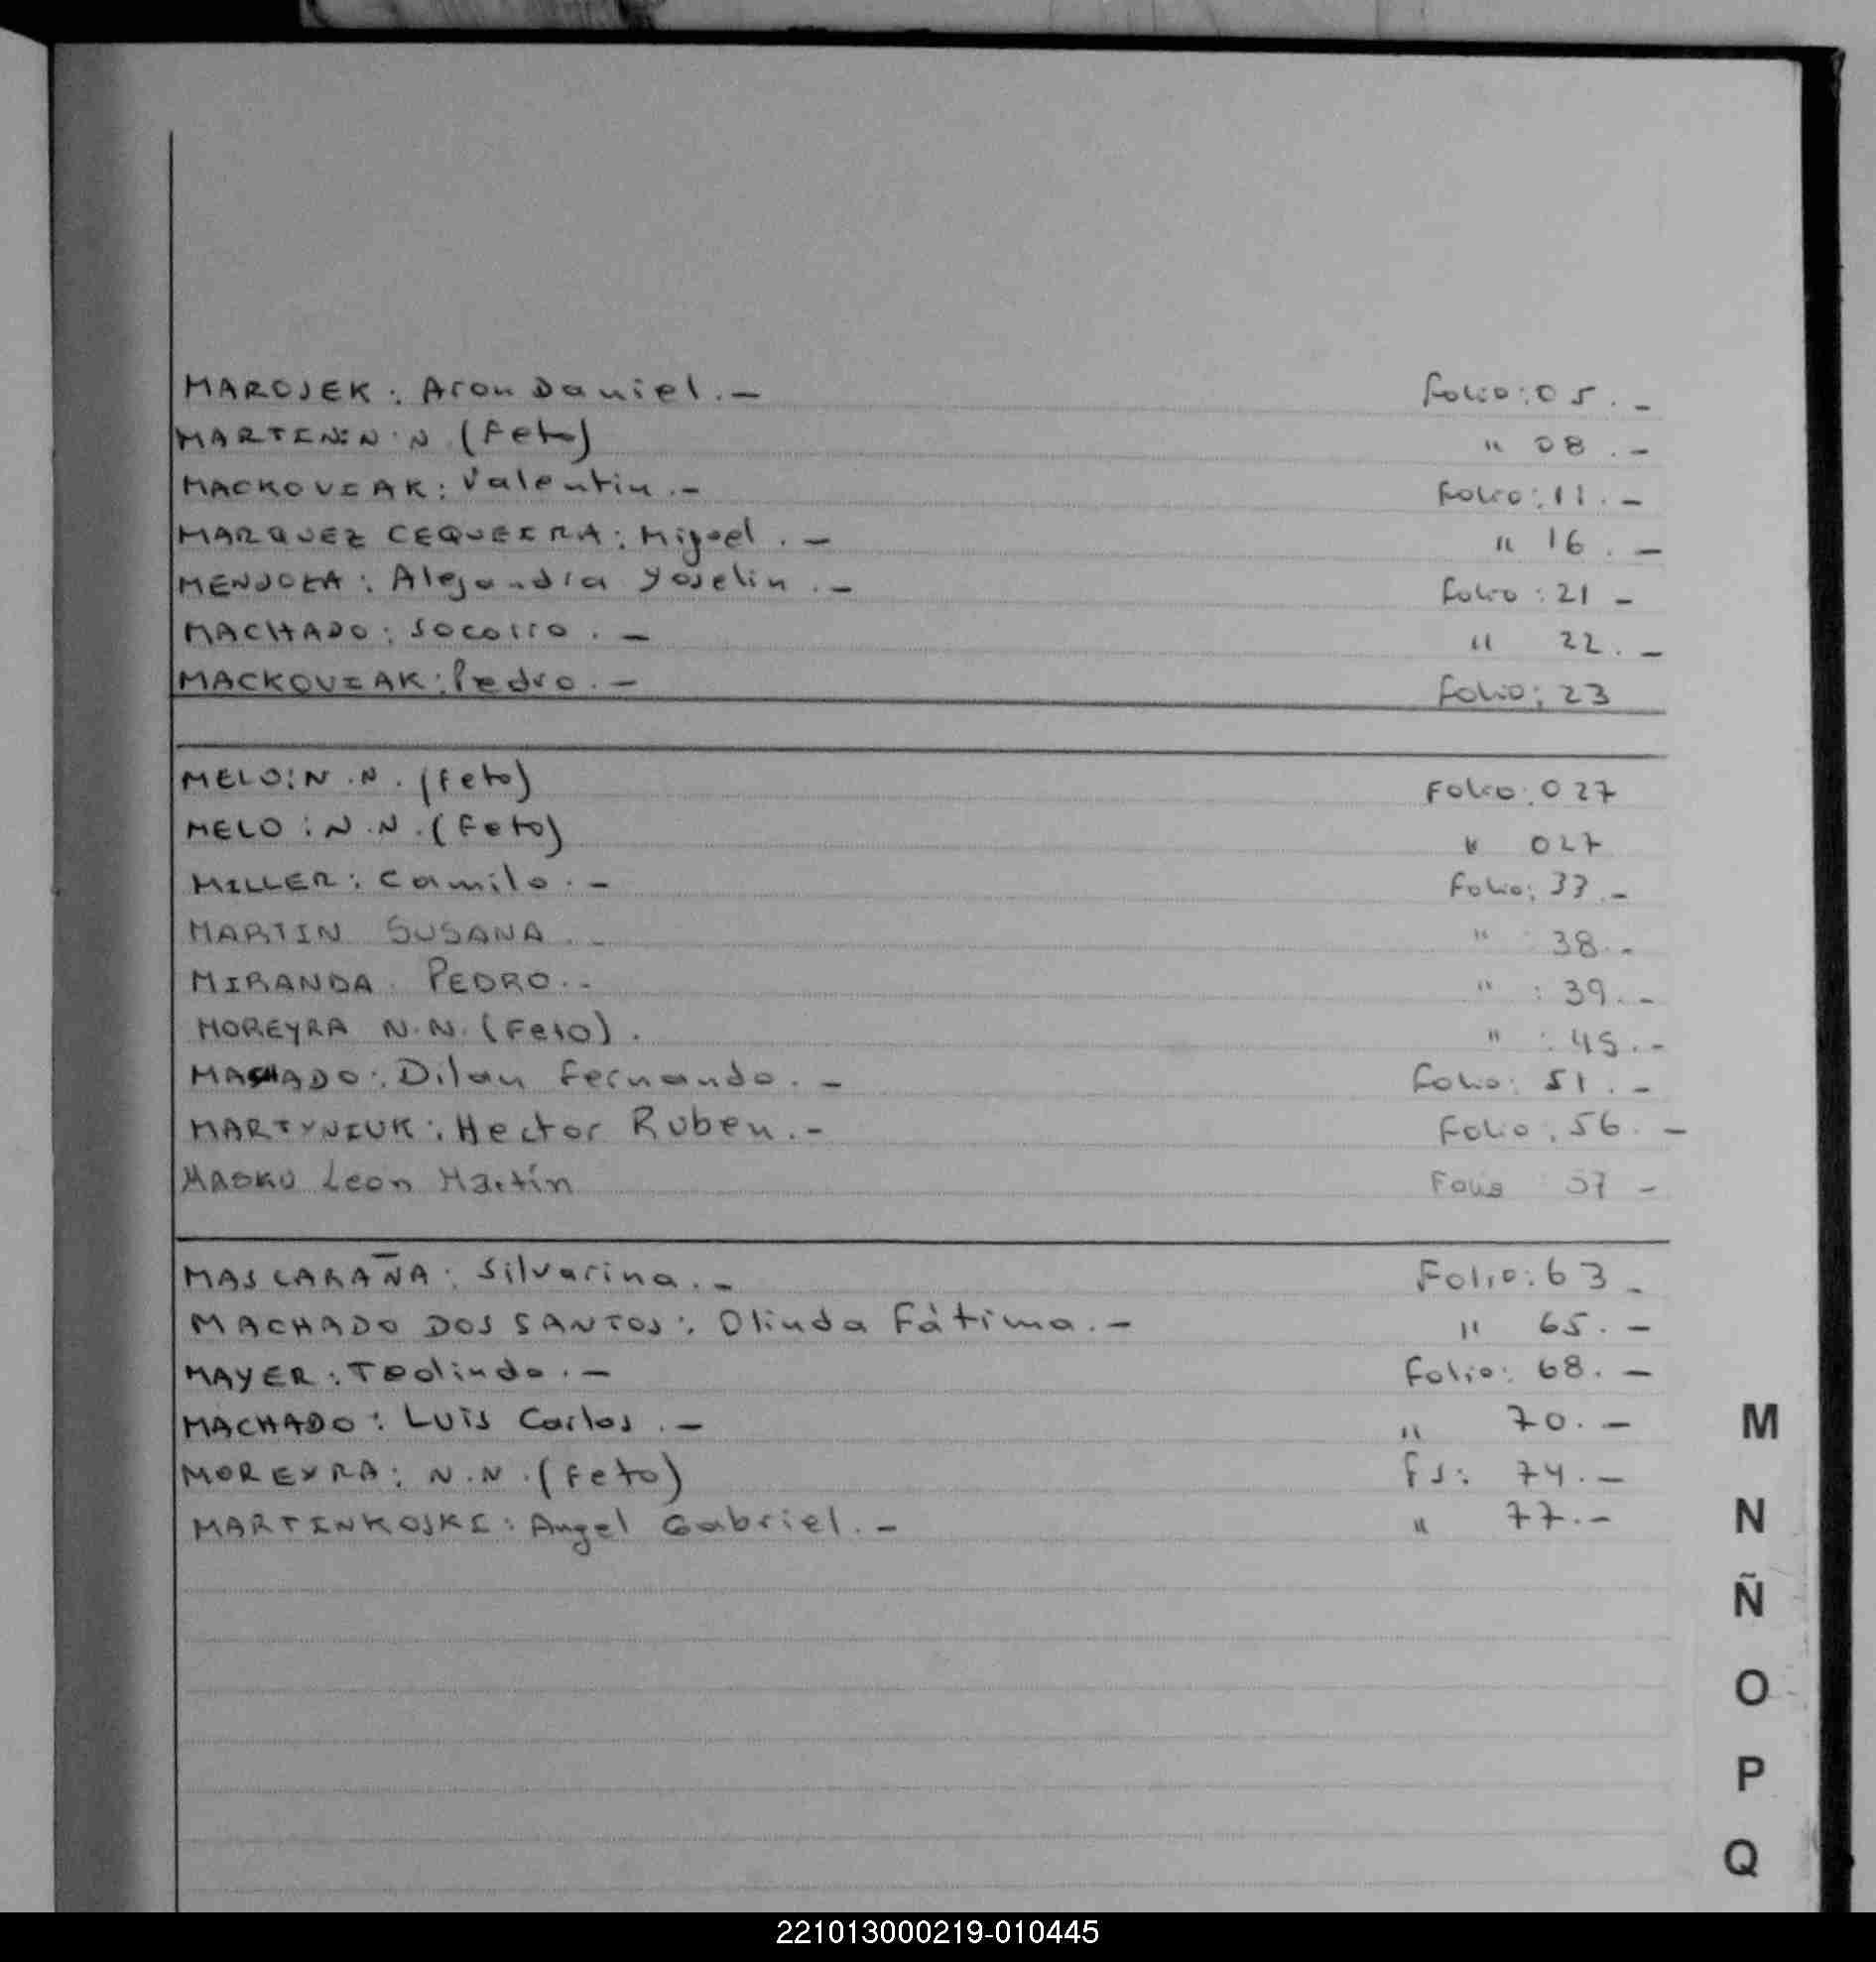 MAROSEK: Aron Daniel.- Folio: 05.-
MARTIN: N.N. (Feto) " 08.-
MACKOVIAK: Valentin.- Folio: 11.-
MARQUEZ CEQUEIRA: Miguel.- " 16.-
MENDOZA: Alejandra Yoselin.- Folio: 21-
MACHADO: Socorro.- " 22.-
MACKOVIAK: Pedro.- Folio: 23
MELO: N.N. (Feto) Folio: 027
MELO: N.N. (Feto) " 027
MILLER: Camilo.- Folio: 33.-
MARTIN SUSANA.- " : 38.-
MIRANDA. PEDRO.- " : 39.-
MOREYRA N.N. (Feto). " : 45.-
MACHADO: Dilan Fernando.- Folio: 51.-
MARTYNIUK: Hector Ruben.- Folio: 56.-
Leon Martín Folio 57-
MASCARAÑA: Silvarina.- Folio: 63-
MACHADO DOS SANTOS: Olinda Fátima.- " 65.-
MAYER: Teolindo.- Folio: 68.-
MACHADO: Luis Carlos.- " 70.-
MOREYRA: N.N. (Feto) Fs: 74.-
MARTINKOSKI: Angel Gabriel.- " 77.-
M
N
Ñ
O
P
Q
221013000219-010445